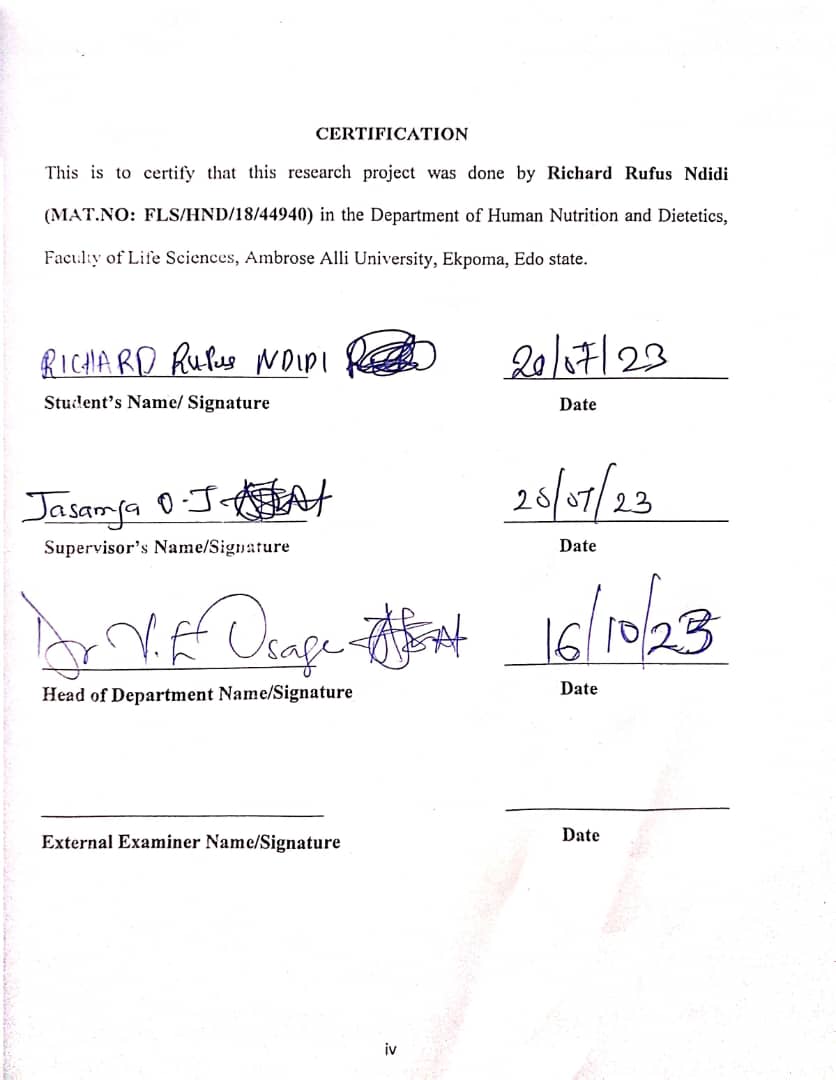 CERTIFICATION
This is to certify that this research project was done by Richard Rufus Ndidi
(MAT.NO: FLS/HND/18/44940) in the Department of Human Nutrition and Dietetics,
Faculty of Life Sciences, Ambrose Alli University, Ekpoma, Edo state.
RICHARD Rufus NDIDI 20/07/23
Student's Name/ Signature Date
O-J /07/23
Supervisor's Name/Signature Date
Dr V. E Osage 16/10/23
Head of Department Name/Signature Date
External Examiner Name/Signature Date
iv